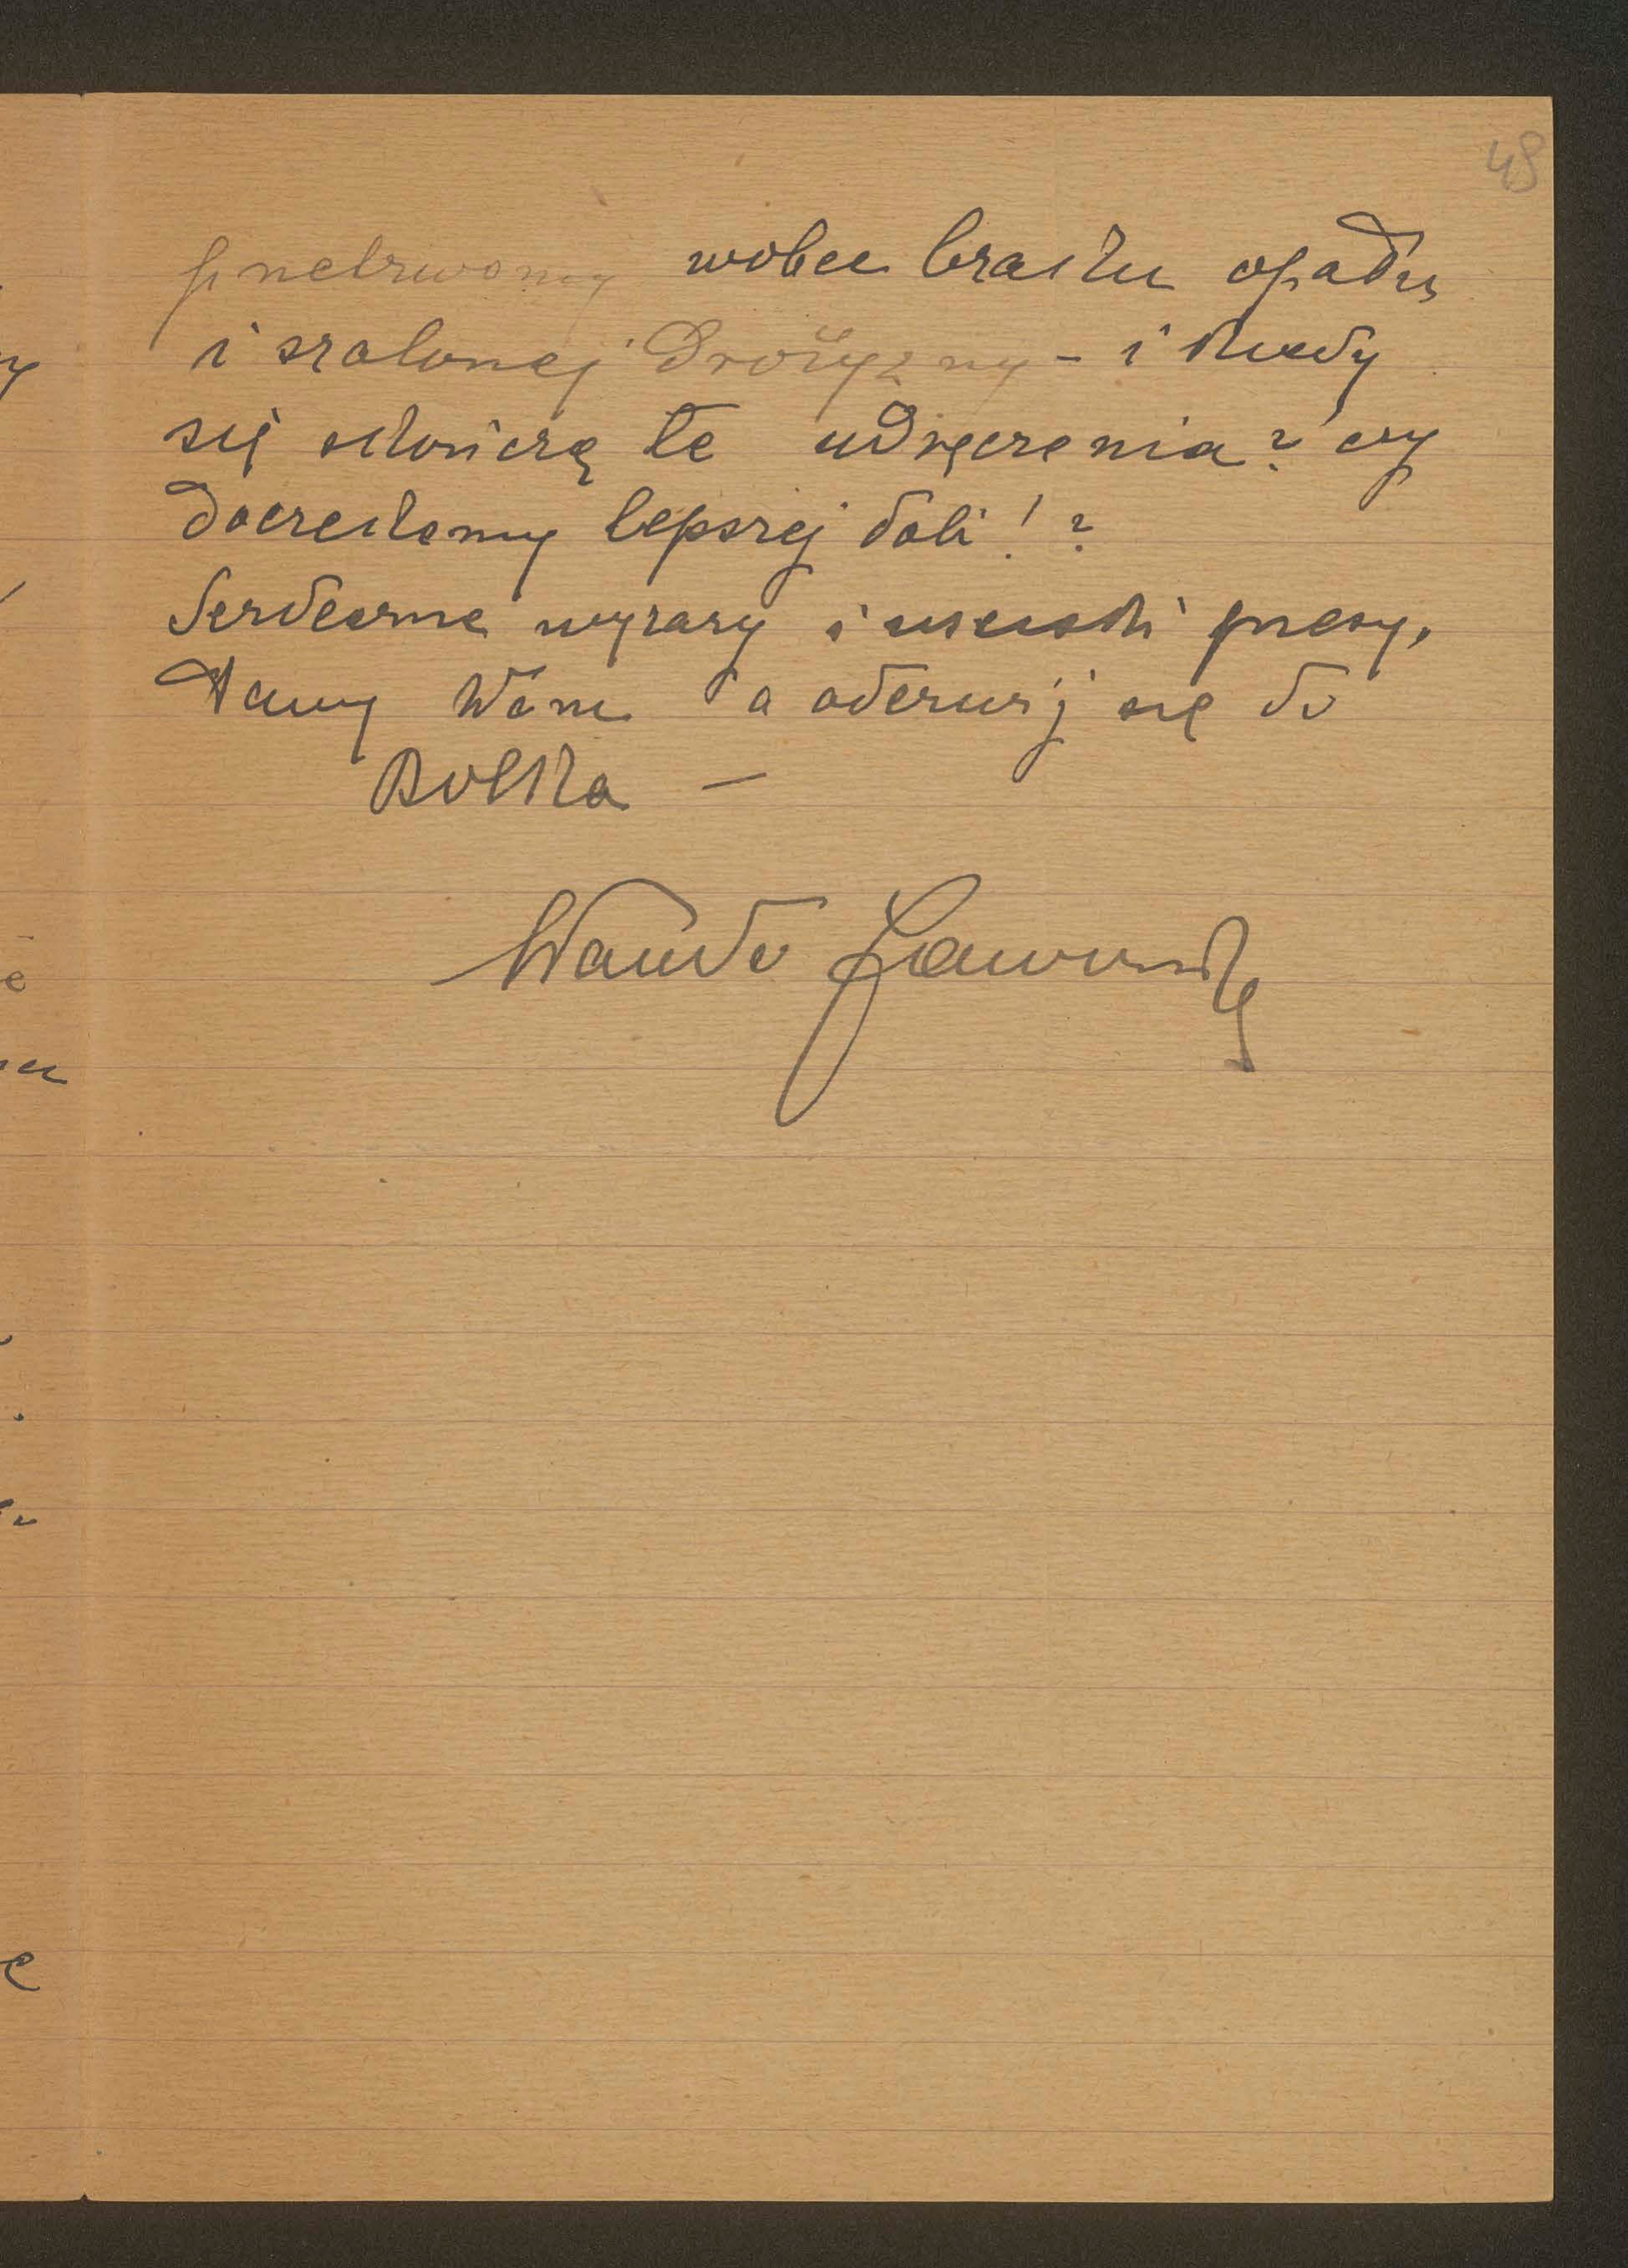 48
przetrwamy wobec braku opału
i szalonej drożyzny - i kiedy
się skończą te udręczenia? czy
doczekamy lepszej doli!?
Serdeczne wyrazy i uściski przesy-
łamy Wam a odezwij się do
Bolka —
Wanda